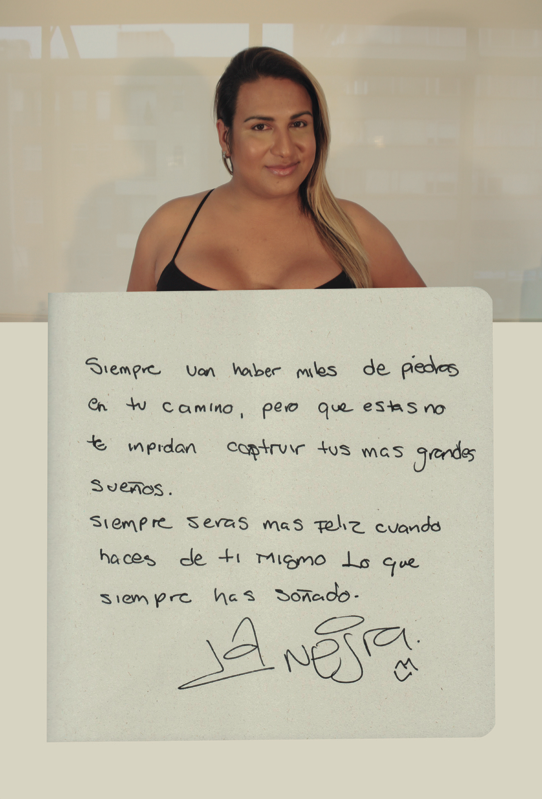 Siempre van haber miles de piedras
en tu camino, pero que estas no
te inpidan coptruir tus mas grandes
sueños.
siempre seras mas Feliz cuando
haces de ti mismo Lo que
siempre has soñado.
La negra.